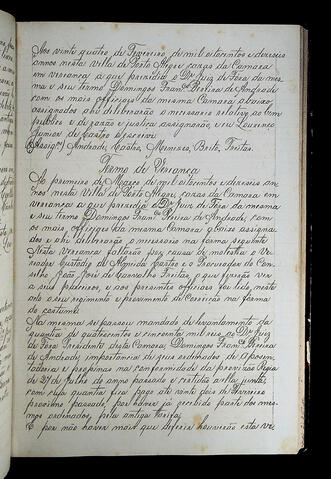 Aos vinte quatro de Fevereiro de mil oitocentos e dezeseis
annos nesta villa de Porto Alegre casas da Camara
em vereança a que prezidio o Dr Juiz de Fora da mes-
ma e seu termo Domingos Franco Pereira de Andrade
com os mais officiaes da mesma Camara abaixo
assignados ahi deliberarão o necessario relativo ao bem
publico e de partes e justiça assignarão, eu Lourenço
Junior de Castro o escrevi
(Assigos) Andrade, Castro, Menezes, Brito, Freitas.
Termo de Vereança
Ao primeiro de Março de mil oitocentos e dezeseis an-
nos nesta Villa de Porto Alegre, casas da Camara em
vereança a que prezidio o Dr Juiz de Fora da mesma
e seu Termo Domingos Franco Pereira de Andrade, com
os mais officiaes da mesma Camara, abaixo assigna-
dos e ahi deliberarão o necessario na forma seguinte
Nesta vereança faltarão por causa de molestia o Ve-
reador Custodio de Almeida Castro e o Procurador do Con-
selho João José de Carvalho Freitas, o que fizerão ver
a seus parceiros, e aos prezentes officiaes foi lido, neste
ato o seu regimento e provimento de Correição na forma
do costume.
Na mesma se passou mandado de levantamento da
quantia de quatrocentos e cincoenta mil reis ao Dr Juiz
de Fora Prezidente desta Camara, Domingos Franco Pereira
de Andrade, importancia de seus ordenados de aposen-
tadoria e propinas na conformidade da provizão Regia
de 27 de Julho do anno passado e certidão a ella junta;
com cuja quantia fica pago até vinte dois de Fevereiro
proximo passado, por haver já recebido parte dos mes-
mos ordenados, pela antiga tarifa.
E por não haver mais que deferir houverão esta ve-